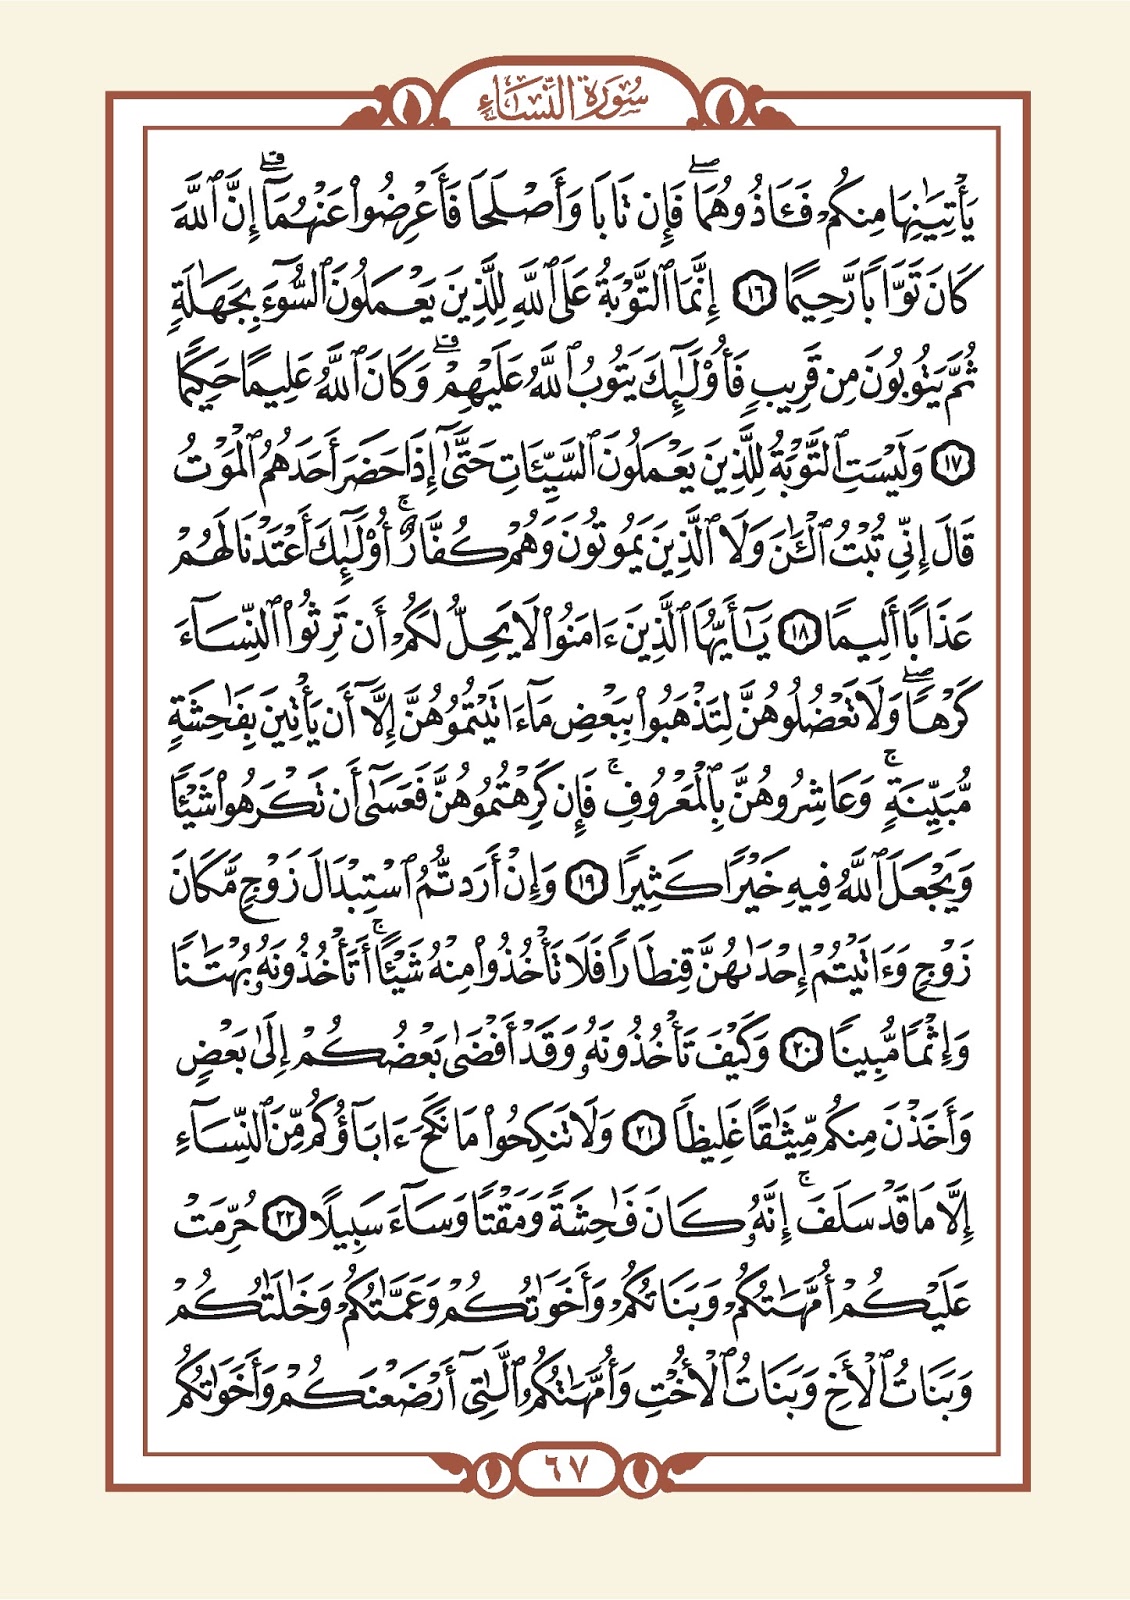 سُورَةُ النِّسَاءِ
يَأْتِيَٰنِهَا مِنكُمْ فَـَٔاذُوهُمَا ۖ فَإِن تَابَا وَأَصْلَحَا فَأَعْرِضُوا۟ عَنْهُمَآ ۗ إِنَّ ٱللَّهَ
كَانَ تَوَّابًا رَّحِيمًا ١٦ إِنَّمَا ٱلتَّوْبَةُ عَلَى ٱللَّهِ لِلَّذِينَ يَعْمَلُونَ ٱلسُّوٓءَ بِجَهَٰلَةٍ
ثُمَّ يَتُوبُونَ مِن قَرِيبٍ فَأُو۟لَٰٓئِكَ يَتُوبُ ٱللَّهُ عَلَيْهِمْ ۗ وَكَانَ ٱللَّهُ عَلِيمًا حَكِيمًا
١٧ وَلَيْسَتِ ٱلتَّوْبَةُ لِلَّذِينَ يَعْمَلُونَ ٱلسَّيِّـَٔاتِ حَتَّىٰٓ إِذَا حَضَرَ أَحَدَهُمُ ٱلْمَوْتُ
قَالَ إِنِّى تُبْتُ ٱلْـَٰٔنَ وَلَا ٱلَّذِينَ يَمُوتُونَ وَهُمْ كُفَّارٌ ۚ أُو۟لَٰٓئِكَ أَعْتَدْنَا لَهُمْ
عَذَابًا أَلِيمًا ١٨ يَٰٓأَيُّهَا ٱلَّذِينَ ءَامَنُوا۟ لَا يَحِلُّ لَكُمْ أَن تَرِثُوا۟ ٱلنِّسَآءَ
كَرْهًا ۖ وَلَا تَعْضُلُوهُنَّ لِتَذْهَبُوا۟ بِبَعْضِ مَآ ءَاتَيْتُمُوهُنَّ إِلَّآ أَن يَأْتِينَ بِفَٰحِشَةٍ
مُّبَيِّنَةٍ ۚ وَعَاشِرُوهُنَّ بِٱلْمَعْرُوفِ ۚ فَإِن كَرِهْتُمُوهُنَّ فَعَسَىٰٓ أَن تَكْرَهُوا۟ شَيْـًٔا
وَيَجْعَلَ ٱللَّهُ فِيهِ خَيْرًا كَثِيرًا ١٩ وَإِنْ أَرَدتُّمُ ٱسْتِبْدَالَ زَوْجٍ مَّكَانَ
زَوْجٍ وَءَاتَيْتُمْ إِحْدَىٰهُنَّ قِنطَارًا فَلَا تَأْخُذُوا۟ مِنْهُ شَيْـًٔا ۚ أَتَأْخُذُونَهُۥ بُهْتَٰنًا
وَإِثْمًا مُّبِينًا ٢٠ وَكَيْفَ تَأْخُذُونَهُۥ وَقَدْ أَفْضَىٰ بَعْضُكُمْ إِلَىٰ بَعْضٍ
وَأَخَذْنَ مِنكُم مِّيثَٰقًا غَلِيظًا ٢١ وَلَا تَنكِحُوا۟ مَا نَكَحَ ءَابَآؤُكُم مِّنَ ٱلنِّسَآءِ
إِلَّا مَا قَدْ سَلَفَ ۚ إِنَّهُۥ كَانَ فَٰحِشَةً وَمَقْتًا وَسَآءَ سَبِيلًا ٢٢ حُرِّمَتْ
عَلَيْكُمْ أُمَّهَٰتُكُمْ وَبَنَاتُكُمْ وَأَخَوَٰتُكُمْ وَعَمَّٰتُكُمْ وَخَٰلَٰتُكُمْ
وَبَنَاتُ ٱلْأَخِ وَبَنَاتُ ٱلْأُخْتِ وَأُمَّهَٰتُكُمُ ٱلَّٰتِىٓ أَرْضَعْنَكُمْ وَأَخَوَٰتُكُم
٦٧